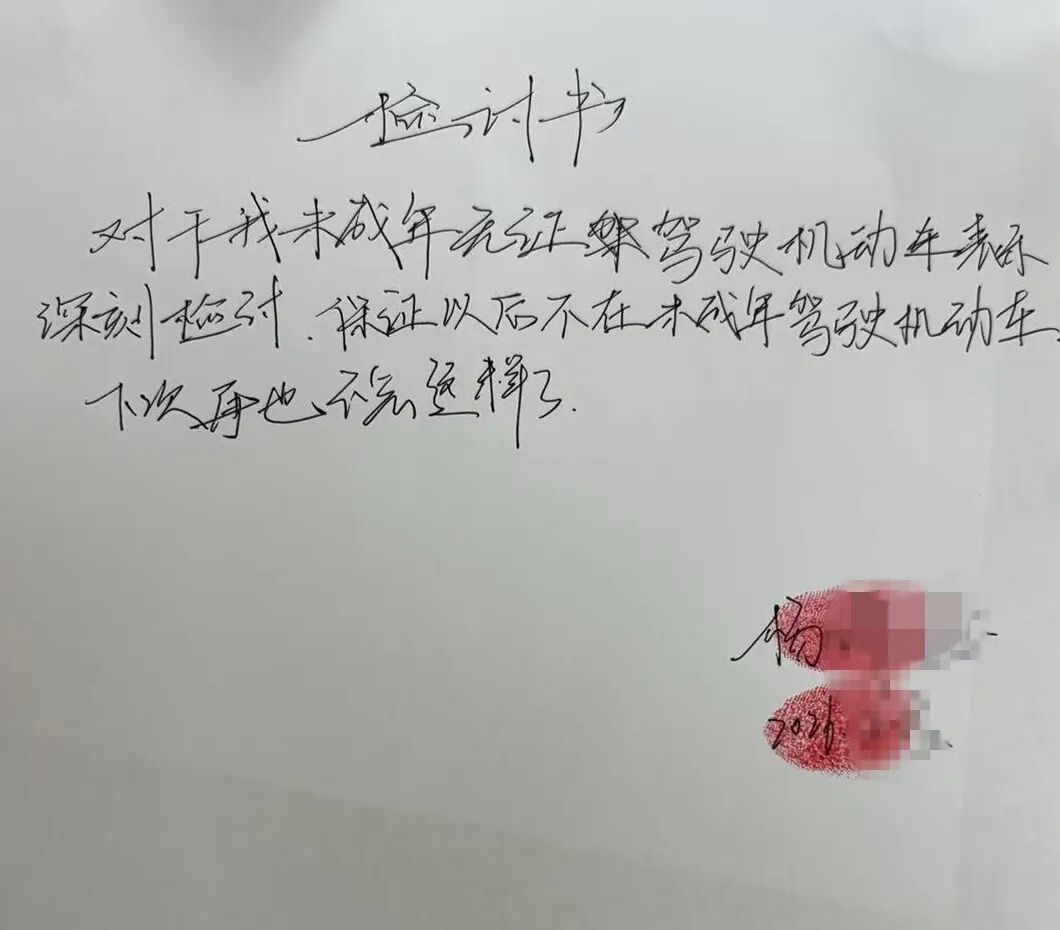 检讨书
对于我未成年无证驾驶机动车表示
深刻检讨.保证以后不在未成年驾驶机动车.
下次再也不会这样了.
杨
2026